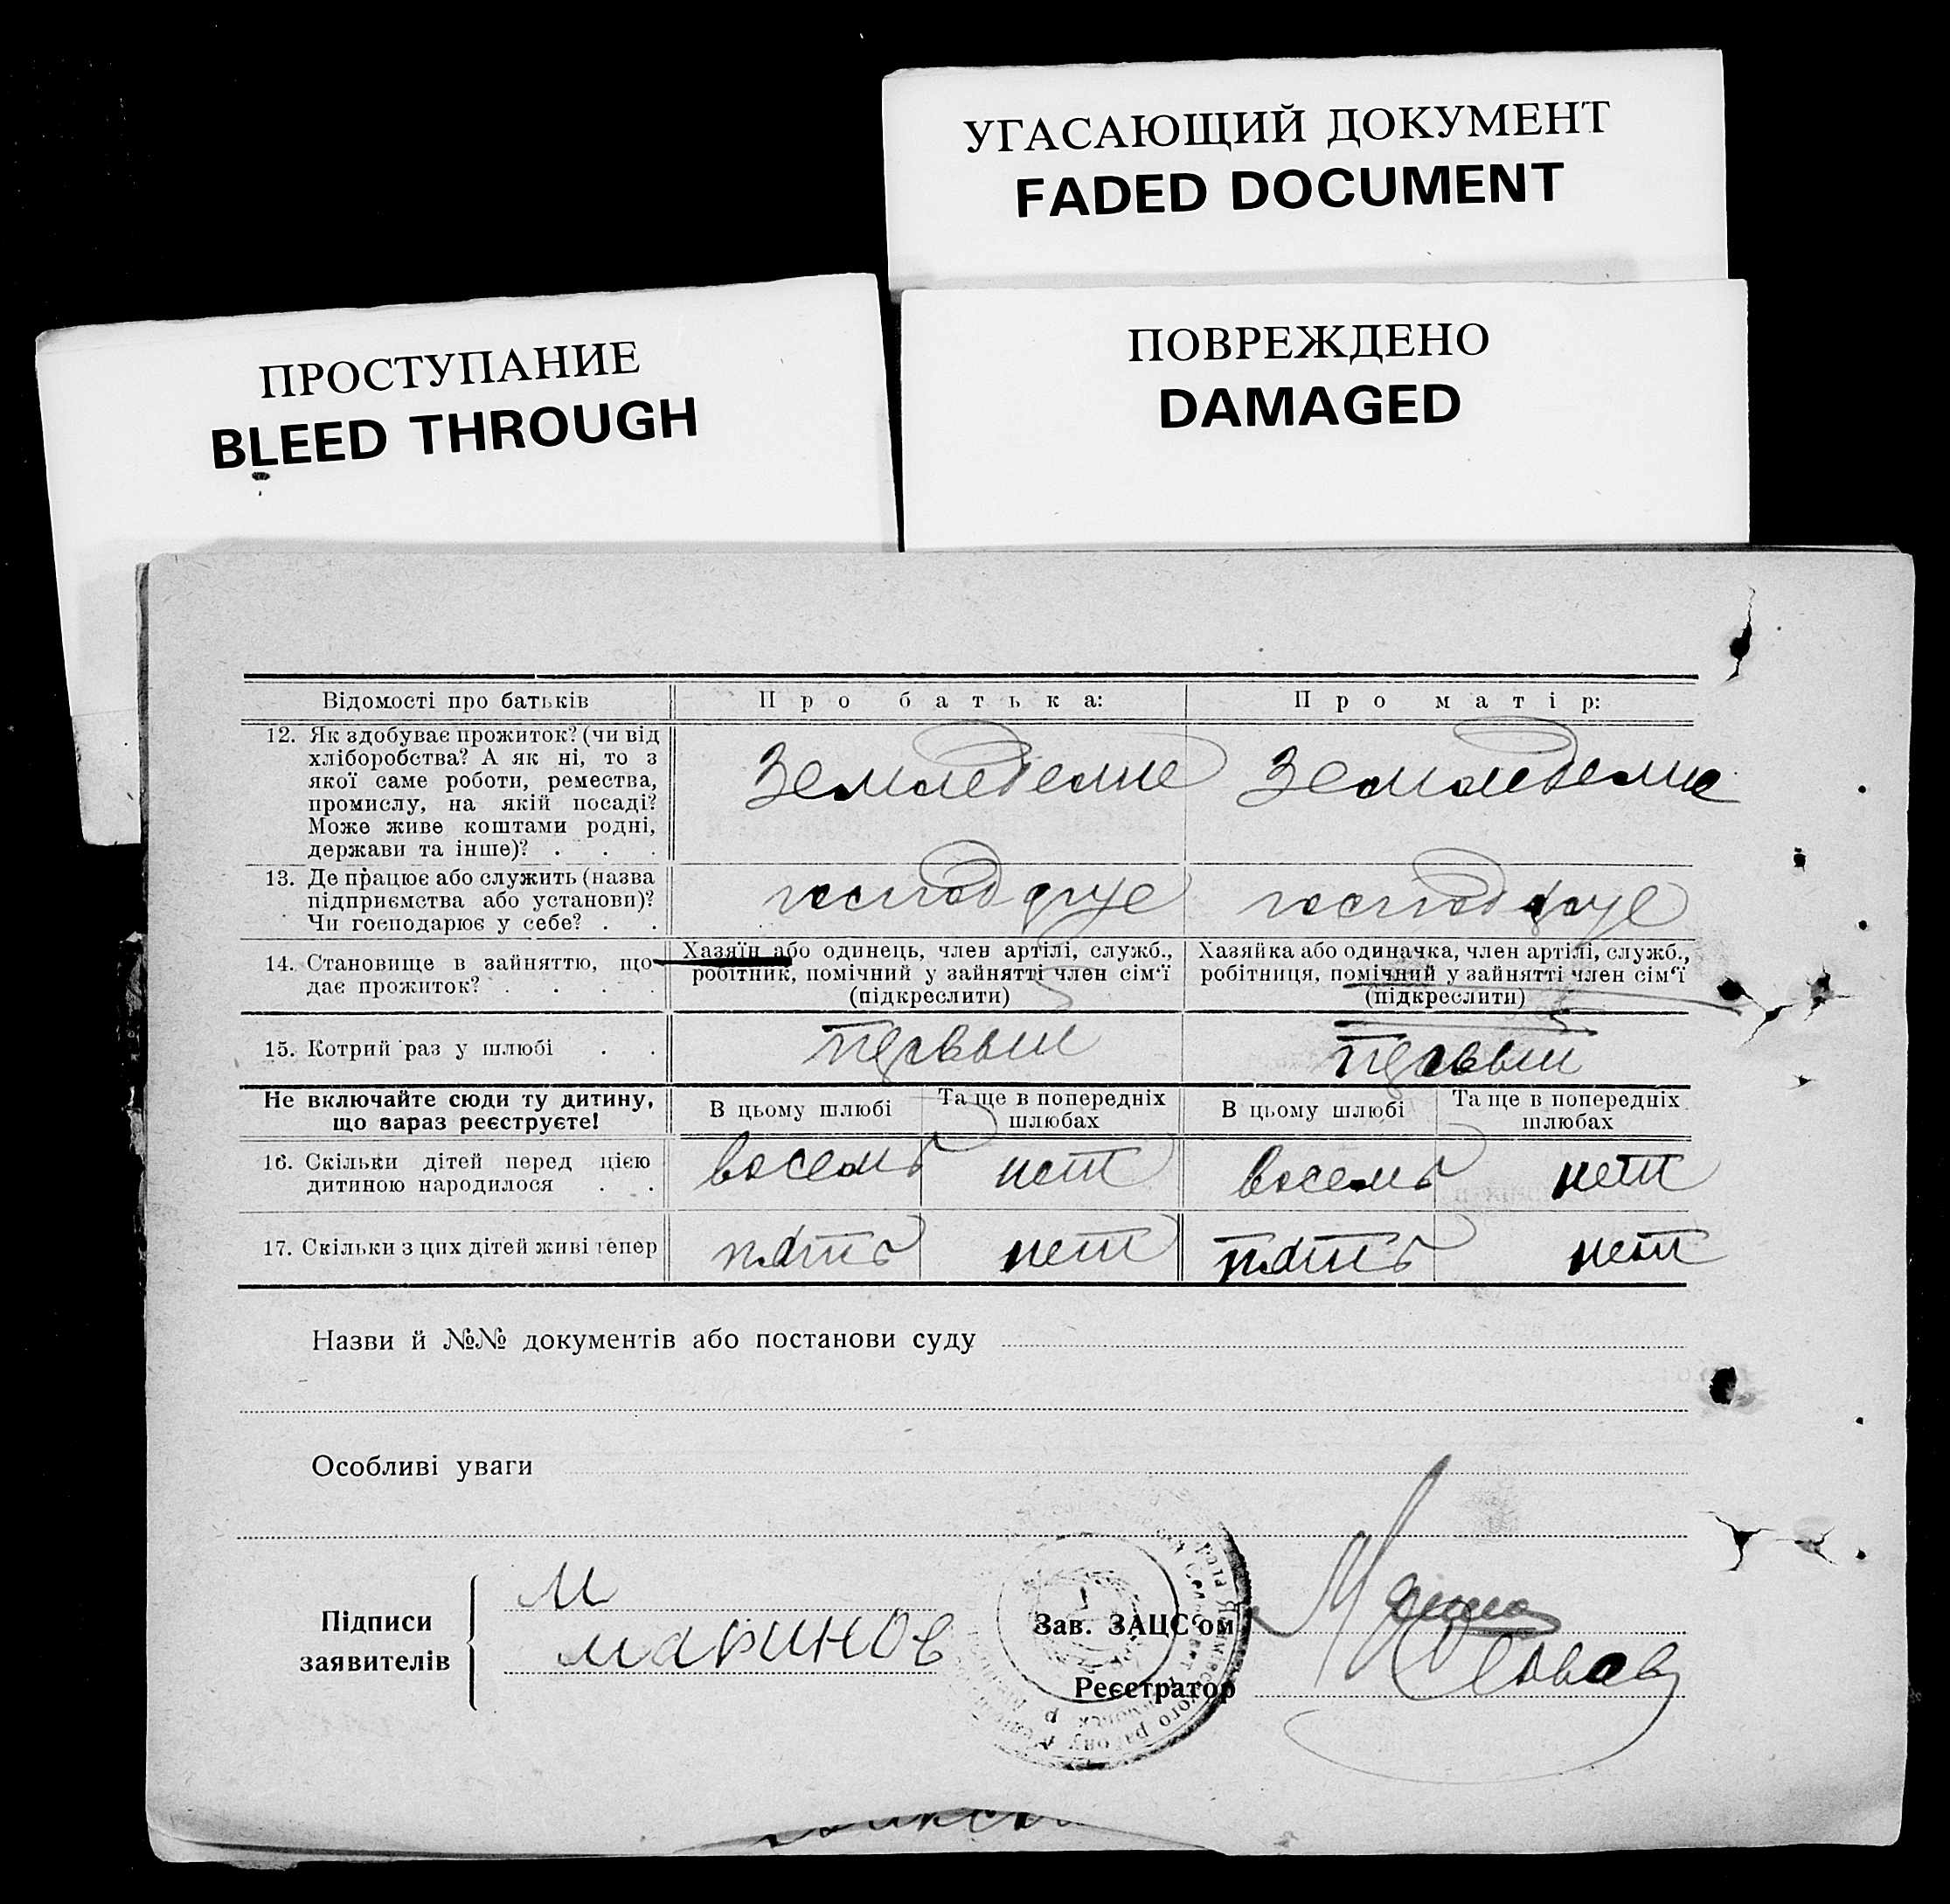 УГАСАЮЩИЙ ДОКУМЕНТ
FADED DOCUMENT
ПРОСТУПАНИЕ
BLEED THROUGH
ПОВРЕЖДЕНО
DAMAGED
Відомості про батьків Про батька: Про матір:
12. Як здобуває прожиток? (чи від
хліборобства? А як ні, то з
якої саме роботи, ремества,
промислу, на якій посаді?
Може живе коштами родні,
держави та інше)? . . .
Земледелие Земледелие
13. Де працює або служить (назва
підприємства або установи)?
Чи господарює у себе? . .
14. Становище в зайняттю, що
дає прожиток? . . . .
Хазяїн або одинець, член артілі, служб.,
робітник, помічний у зайнятті член сім'ї
(підкреслити)
Хазяйка або одиначка, член артілі, служб.,
робітниця, помічний у зайнятті член сім'ї
(підкреслити)
15. Котрий раз у шлюбі . . первый первый
Не включайте сюди ту дитину,
що зараз реєструєте!
В цьому шлюбі
Та ще в попередніх
шлюбах
В цьому шлюбі
Та ще в попередніх
шлюбах
16. Скільки дітей перед цією
дитиною народилося . .
восемь нет восемь нет
17. Скільки з цих дітей живі тепер пять нет пять нет
Назви й №№ документів або постанови суду
Особливі уваги
Підписи
заявителів
М
маринов
Зав. ЗАЦС'ом
Реєстратор